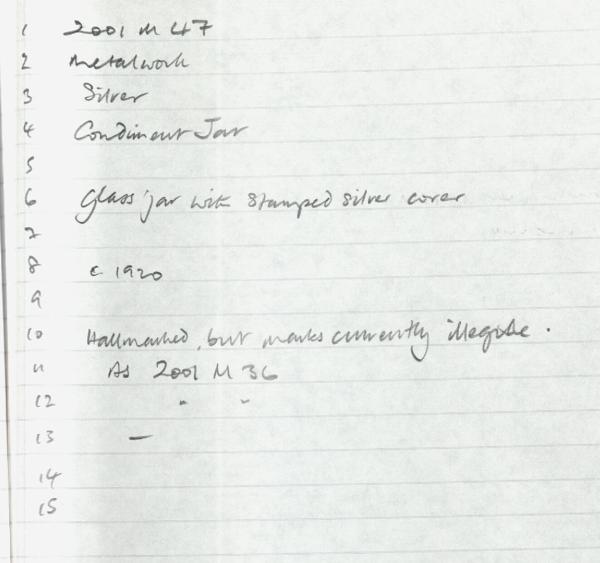 1 2001 M 47
2 Metalwork
3 Silver
4 Condiment Jar
5
6 Glass jar with stamped silver cover
7
8 c 1920
9
10 Hallmarked, but marks currently illegible.
11 As 2001 M 36
12 " "
13 —
14
15